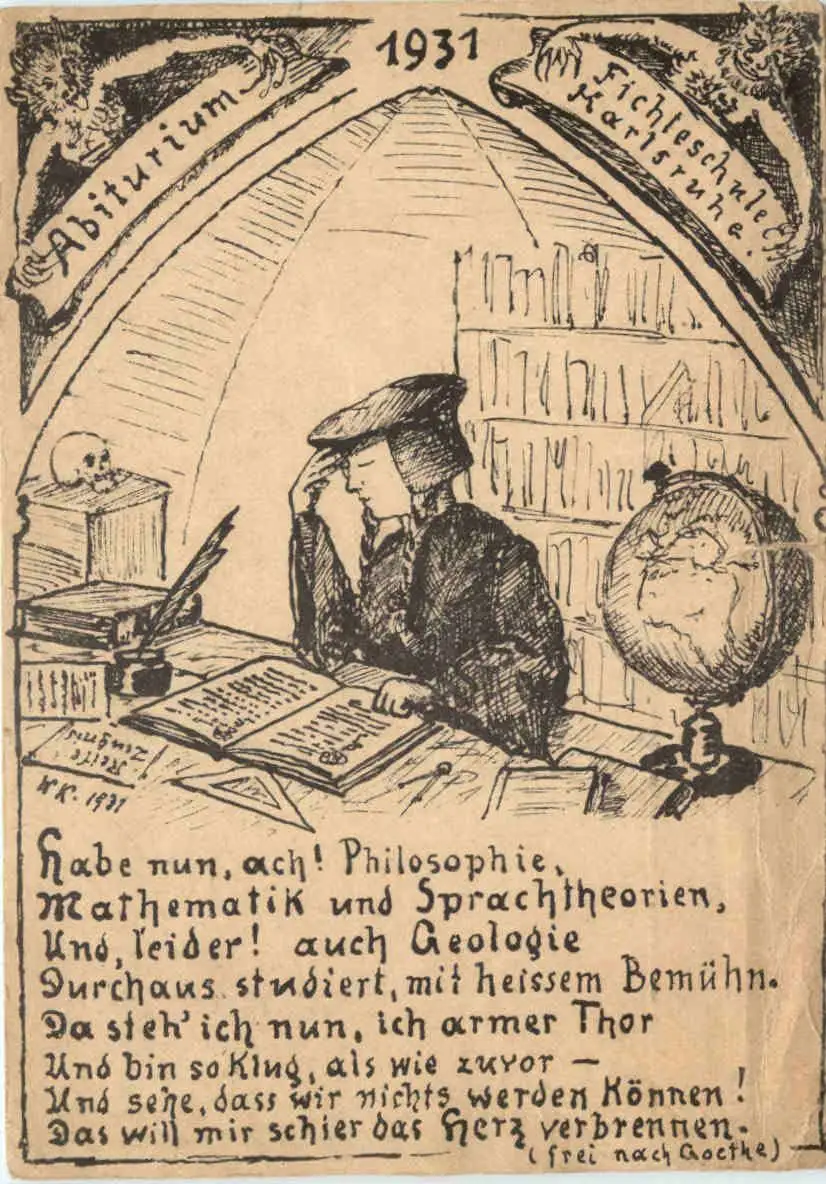 1931
Abiturium
Fichteschule
Karlsruhe.
Reife
Zeugnis
KK. 1931
Habe nun, ach! Philosophie,
Mathematik und Sprachtheorien,
Und, leider! auch Geologie
Durchaus studiert, mit heissem Bemühn.
Da steh' ich nun, ich armer Thor
Und bin so klug, als wie zuvor —
Und sehe, dass wir nichts werden können!
Das will mir schier das Herz verbrennen.
(frei nach Goethe)